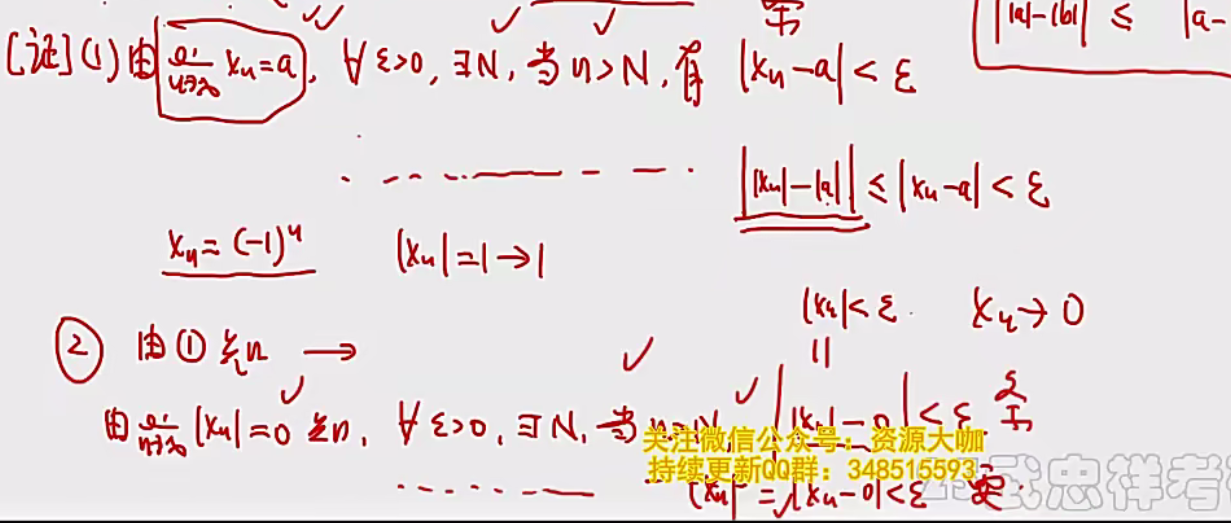 | |a|-|b| | ≤ |a-
[证](1) 由 lim_{n→∞} x_n=a, ∀ε>0, ∃N, 当 n>N, 有 |x_n-a|<ε
| |x_n|-|a| | ≤ |x_n-a| < ε
x_n=(-1)^n |x_n|=1→1
|x_n|<ε. x_n→0
② 由① 知 →
由 lim_{n→∞} |x_n|=0 知, ∀ε>0, ∃N, 当 n>N, | |x_n|-0 |<ε
关注微信公众号:资源大咖
持续更新QQ群:348515593
|x_n| = |x_n-0|<ε
武忠祥考